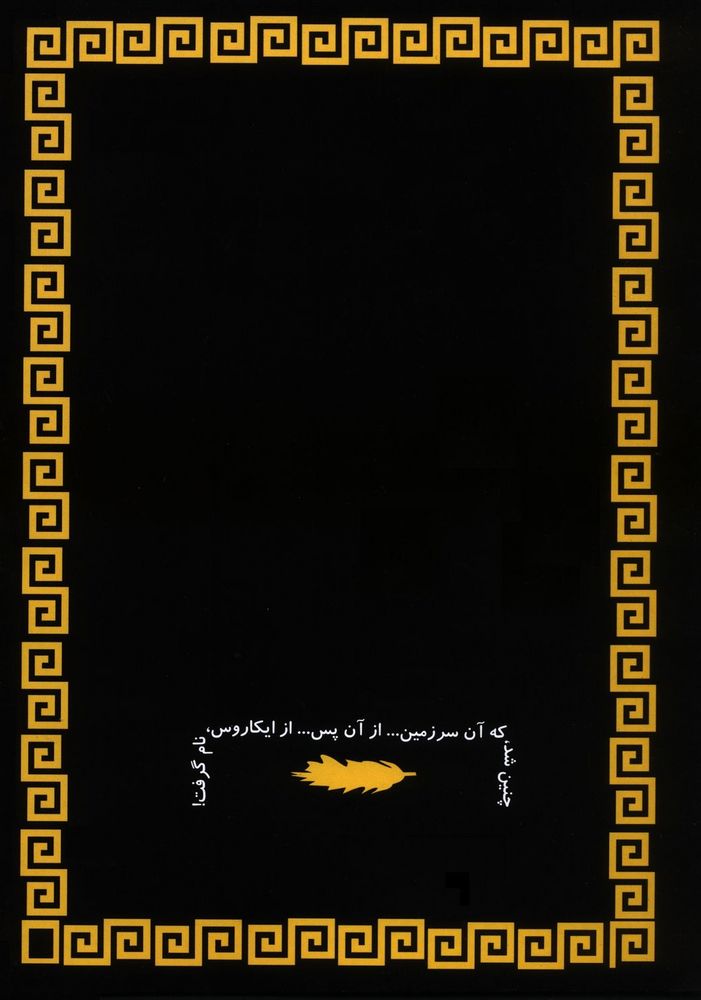 چنین شد،
که آن سرزمین... از آن پس... از ایکاروس،
نام گرفت!